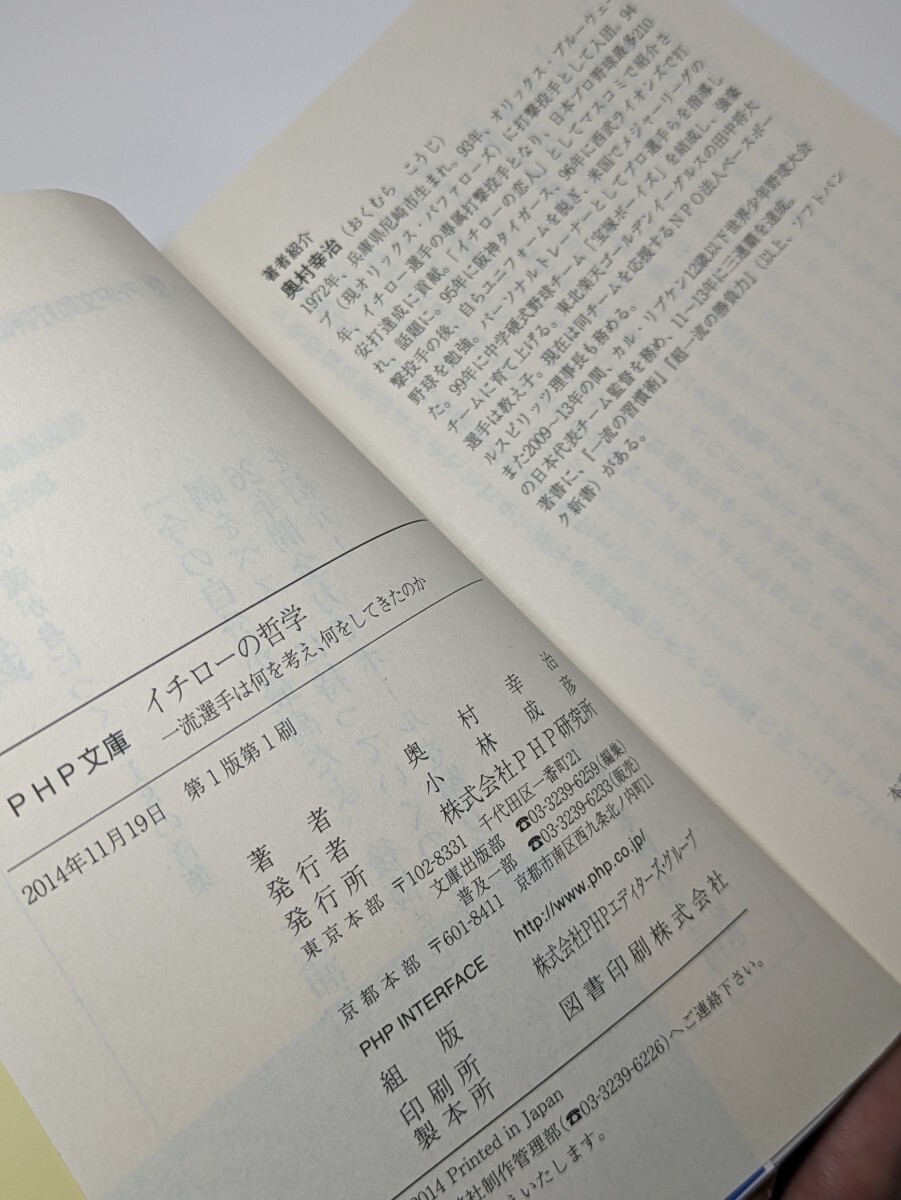 著者紹介
奥村幸治(おくむら こうじ)
1972年、兵庫県尼崎市生まれ。93年、オリックス・ブルーウェー
ブ(現オリックス・バファローズ)に打撃投手として入団。94
年、イチロー選手の専属打撃投手となり、日本プロ野球最多210
安打達成に貢献。「イチローの恋人」としてマスコミで紹介さ
れ、話題に。95年に阪神タイガース、96年に西武ライオンズで打
撃投手の後、自らユニフォームを脱ぎ、米国でメジャーリーグの
野球を勉強。パーソナルトレーナーとしてプロ選手らを指導し
た。99年に中学硬式野球チーム「宝塚ボーイズ」を結成し、強豪
チームに育て上げる。東北楽天ゴールデンイーグルスの田中将大
選手は教え子。現在は同チームを応援するNPO法人ベースボー
ルスピリッツ理事長も務める。
また2009〜13年の間、カル・リプケン12歳以下世界少年野球大会
の日本代表チーム監督を務め、11〜13年に三連覇を達成。
著書に、『一流の習慣術』『超一流の勝負力』(以上、ソフトバン
ク新書)がある。
PHP文庫 イチローの哲学
一流選手は何を考え、何をしてきたのか
2014年11月19日 第1版第1刷
著者 奥村幸治
発行者 小林成彦
発行所 株式会社PHP研究所
東京本部 〒102-8331 千代田区一番町21
文庫出版部 ☎03-3239-6259(編集)
普及一部 ☎03-3239-6233(販売)
京都本部 〒601-8411 京都市南区西九条北ノ内町11
PHP INTERFACE http://www.php.co.jp/
組版 株式会社PHPエディターズ・グループ
印刷所
製本所 図書印刷株式会社
2014 Printed in Japan
社制作管理部(☎03-3239-6226)へご連絡下さい。
いたします。